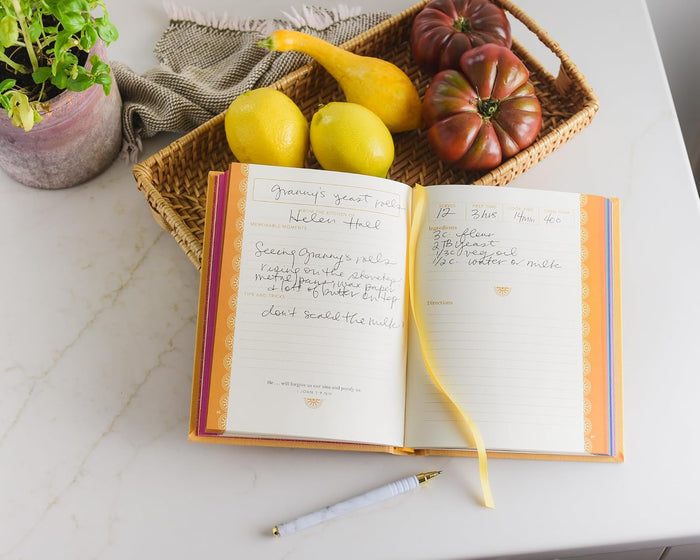 Granny's yeast rolls
THE KITCHEN OF
Helen Hall
MEMORABLE MOMENTS
Seeing Granny's rolls
rising on the stovetop
metal pans, wax paper
& lot of butter on top
TIPS AND TRICKS
don't scald the milk
He ... will forgive us our sins and purify us.
1 JOHN 1:9 NIV
SERVES PREP TIME COOK TIME
12 3 hrs 14 min 400
Ingredients
3 c. flour
2 TB yeast
1/3 c veg oil
1 1/2 c. water or milk
Directions